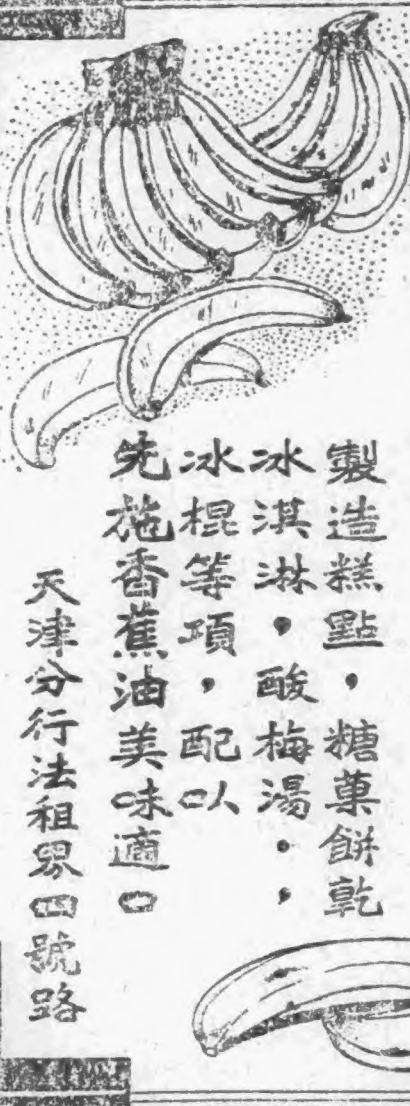 製造糕點，糖菓餅乾
冰淇淋，酸梅湯，，
冰棍等項，配以
先施香蕉油美味適口
天津分行法租界四號路